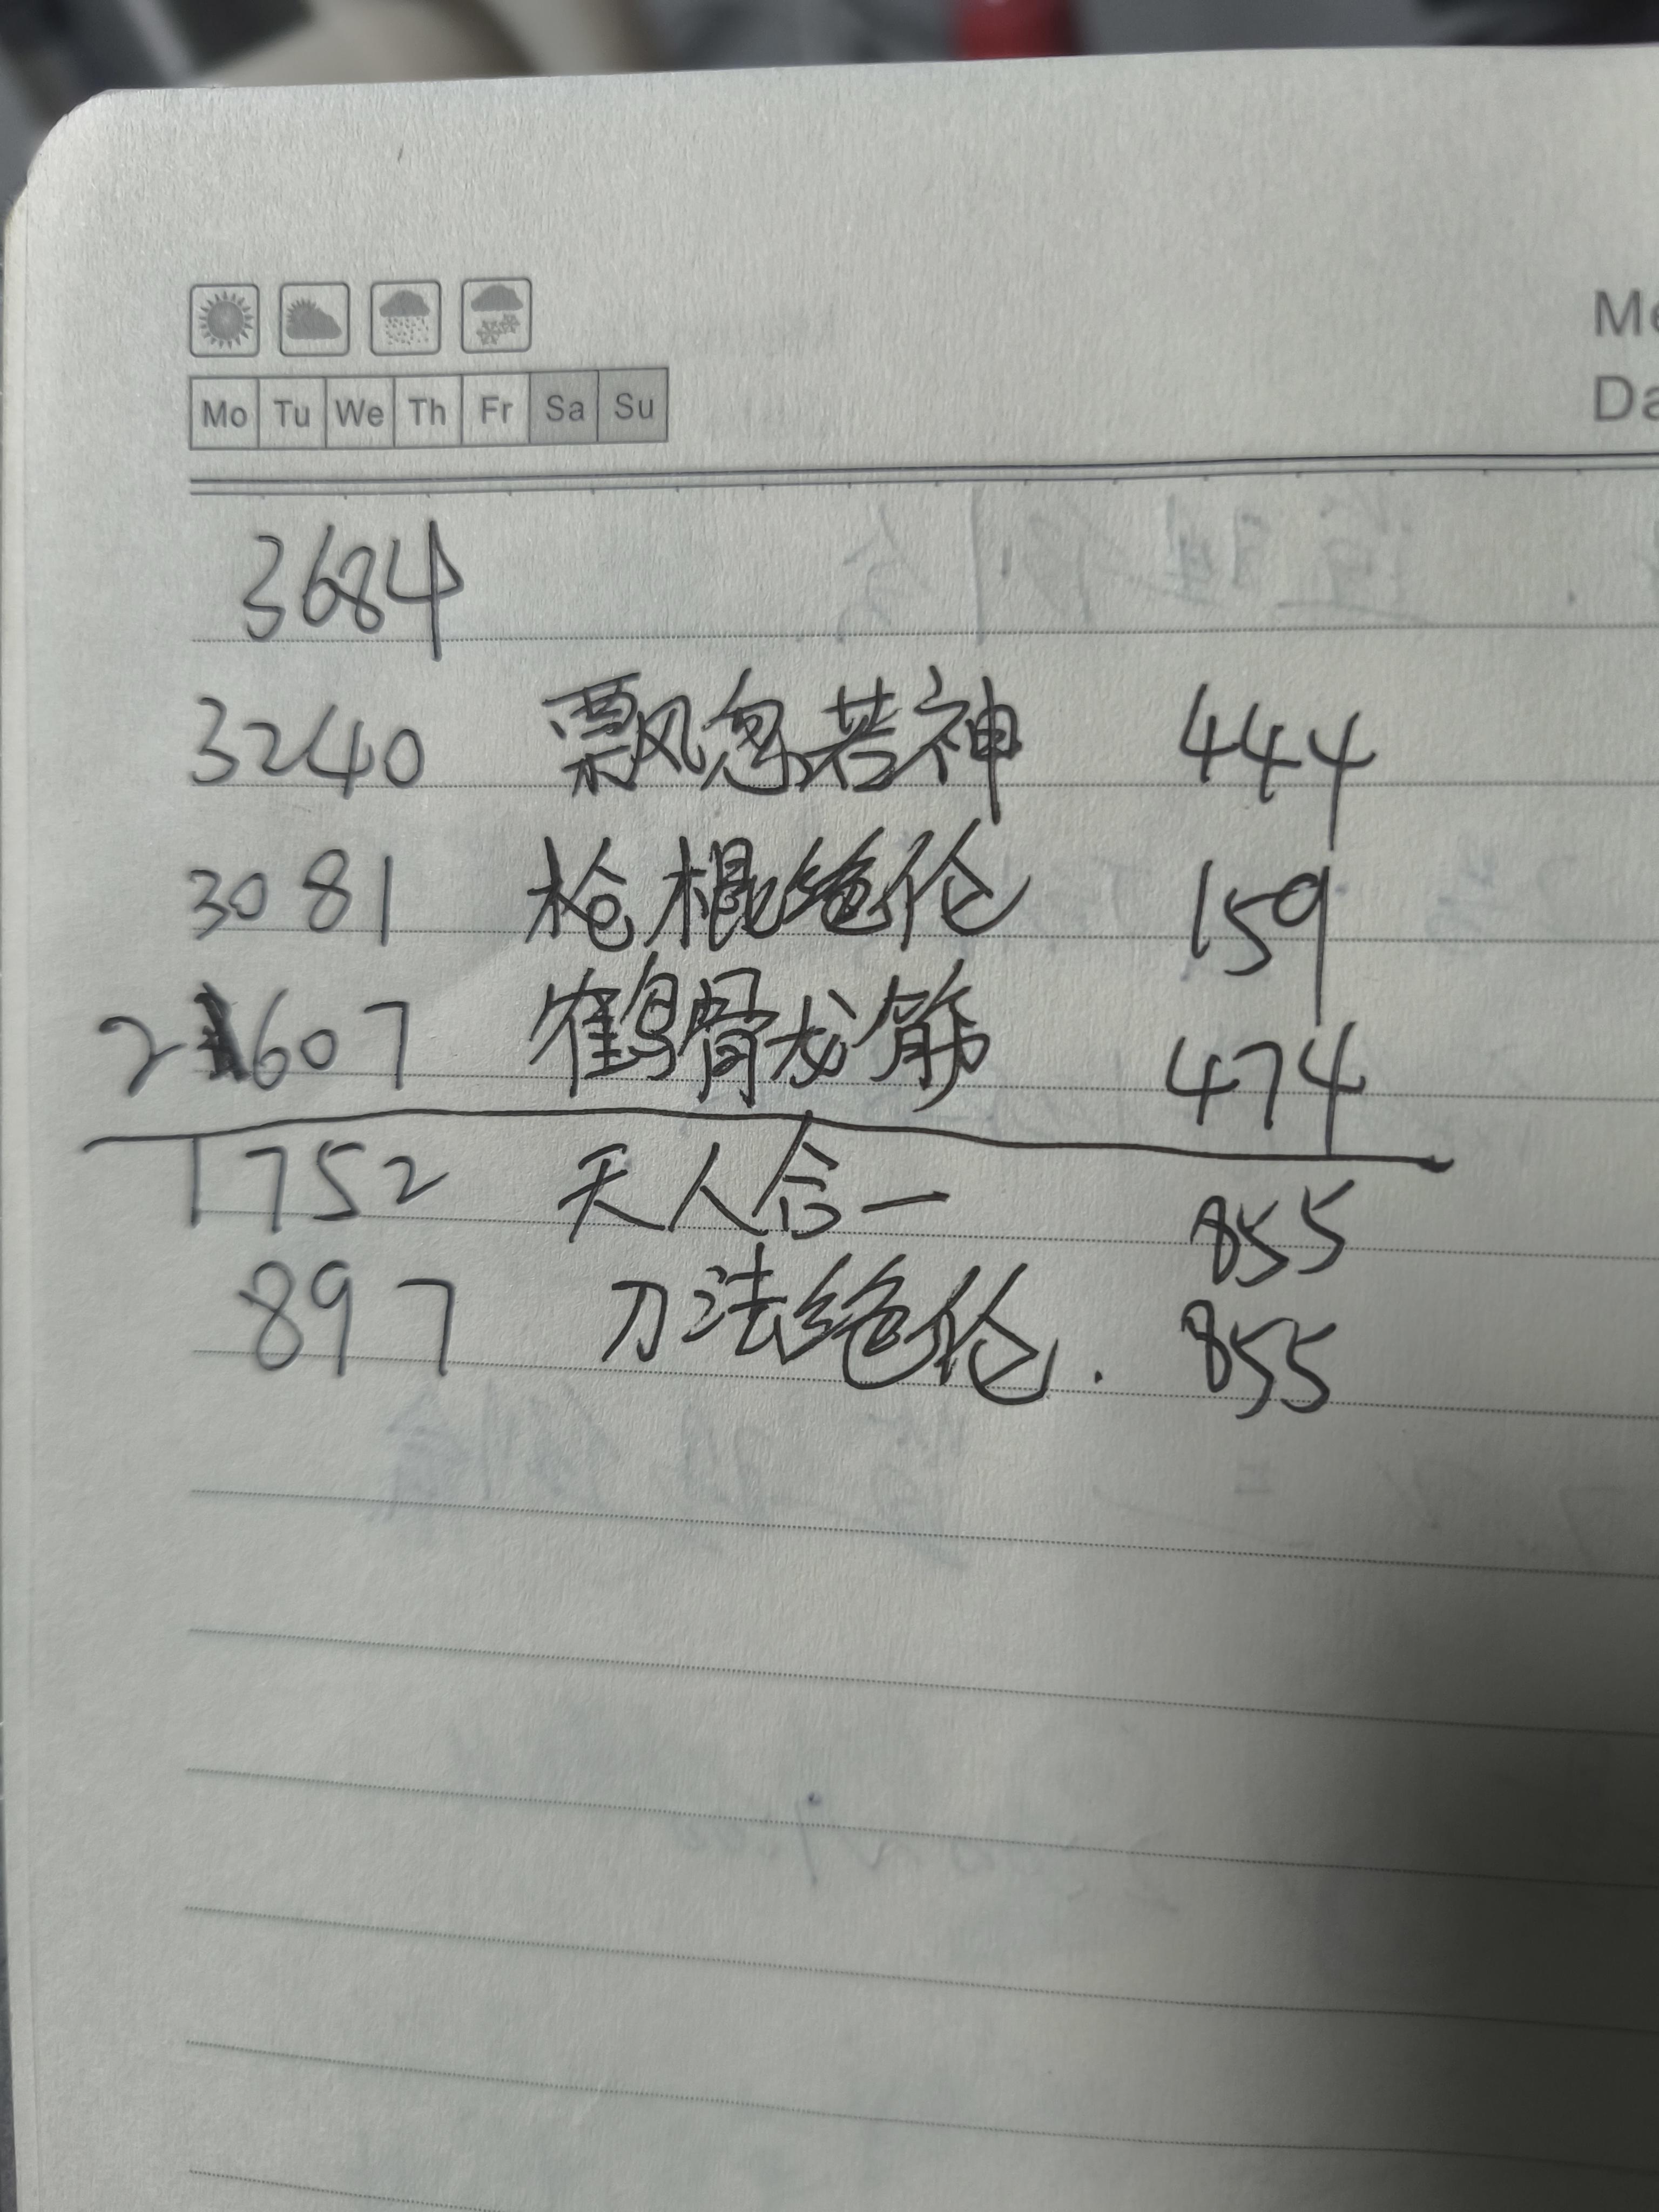 Me
Mo Tu We Th Fr Sa Su
Da
3684
3240 飘忽若神 444
3081 枪棍绝伦 159
2607 鹤骨龙筋 474
1752 天人合一 855
897 刀法绝伦. 855